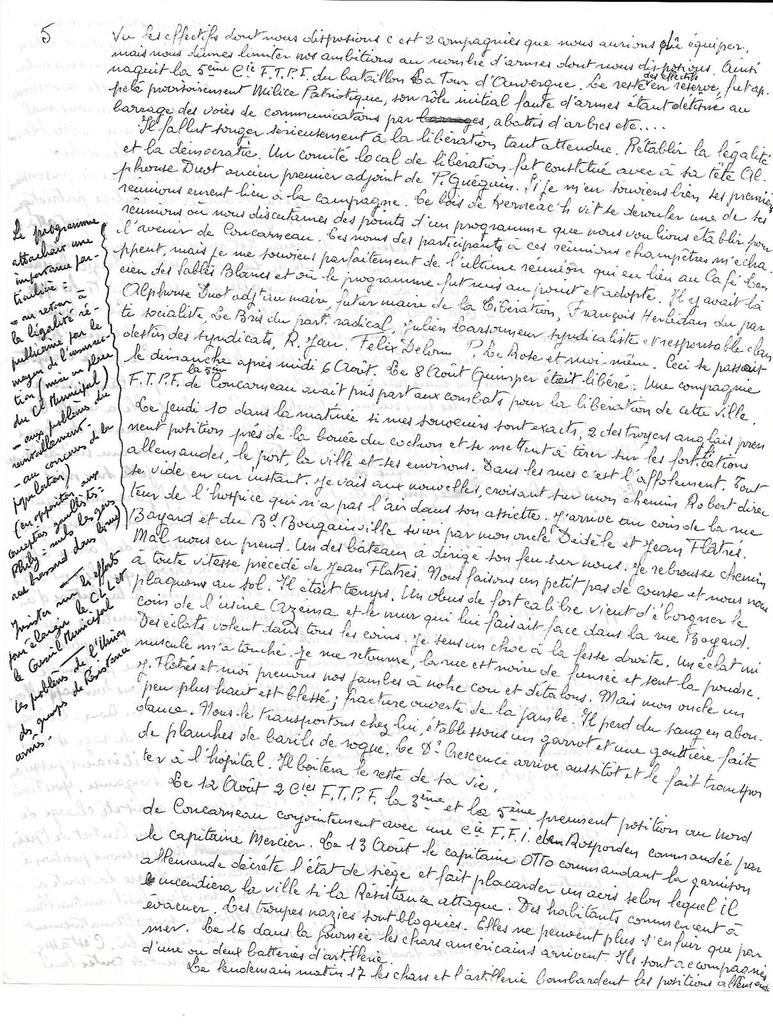 5
Vu les effectifs dont nous disposions c'est 2 compagnies que nous aurions pu équiper,
mais nous dûmes limiter nos ambitions au nombre d'armes dont nous disposions. Ainsi
naquit la 5ème Cie F.T.P.F. du bataillon La Tour d'Auvergne. Le reste des effectifs en réserve, fut ap-
pelé provisoirement Milice Patriotique, son rôle initial faute d'armes étant destiné au
barrage des voies de communications par abattis d'arbres etc....
Il fallut songer sérieusement à la libération tant attendue. Rétablir la légalité
et la démocratie. Un comité local de libération fut constitué avec à sa tête Al-
phonse Duot ancien premier adjoint de P. Guéguin. Si je m'en souviens bien, ses premières
réunions eurent lieu à la campagne. Le bois de Kerneac'h vit se dérouler une de ses
réunions où nous discutâmes des points d'un programme que nous voulions établir pour
l'avenir de Concarneau. Les noms des participants à ces réunions champêtres m'écha-
ppent, mais je me souviens parfaitement de l'ultime réunion qui eu lieu au Café
cien des Sables Blancs et où le programme fut mis au point et adopté. Il y avait là
Alphonse Duot adjt au maire, futur maire de la Libération, François Herlédan du par-
ti socialiste Le Bris du parti radical, Julien Larsonneur syndicaliste et responsable clan-
destin des syndicats, R. Jan. Felix Delorm P. Le Rose et moi-même. Ceci se passait
le dimanche après midi 6 Août. Le 8 Août Quimper était libéré. Une compagnie
F.T.P.F. la 5ème de Concarneau avait pris part aux combats pour la libération de cette ville.
Le jeudi 10 dans la matinée si mes souvenirs sont exacts, 2 destroyers anglais pren-
nent position près de la bouée du cochon et se mettent à tirer sur les fortifications
allemandes, le port, la ville et ses environs. Dans les rues c'est l'affolement. Tout
se vide en un instant. Je vais aux nouvelles, croisant sur mon chemin Robert direc-
teur de l'hospice qui n'a pas l'air dans son assiette. J'arrive au coin de la rue
Bayard et du Bd Bougainville suivi par mon oncle Dédèle et Jean Flatrès.
Mal nous en prend. Un des bâteaux a dirigé son feu sur nous. Je rebrousse chemin
à toute vitesse précédé de Jean Flatrès. Nous faisons un petit pas de course et nous nous
plaquons au sol. Il était temps. Un obus de fort calibre vient d'éborgner le
coin de l'usine Azema et le mur qui lui faisait face dans la rue Bayard.
Des éclats volent dans tous les coins. Je sens un choc à la fesse droite. Un éclat mi-
nuscule m'a touché. Je me retourne, la rue est noire de fumée et sent la poudre.
J. Flatrès et moi prenons nos jambes à notre cou et détalons. Mais mon oncle un
peu plus haut est blessé ; fracture ouverte de la jambe. Il perd du sang en abon-
dance. Nous le transportons chez lui, établissons un garrot et une gouttière faite
de planches de barils de rogue. Le Dr Crescence arrive aussitôt et le fait transpor-
ter à l'hôpital. Il boitera le reste de sa vie.
Le 12 Août 2 Cies F.T.P.F. la 3ème et la 5ème prennent position au nord
de Concarneau conjointement avec une Cie F.F.I. de Rosporden commandée par
le capitaine Mercier. Le 13 Août le capitaine OTTO commandant la garnison
allemande décrète l'état de siège et fait placarder un avis selon lequel il
incendiera la ville si la Résistance attaque. Des habitants commencent à
évacuer. Les troupes nazies sont bloquées. Elles ne peuvent plus s'enfuir que par
mer. Le 16 dans la journée les chars américains arrivent. Ils sont accompagnés
d'une ou deux batteries d'artillerie.
Le lendemain matin 17 les chars et l'artillerie bombardent les positions allemandes
Le programme
attachait une
importance par-
ticulière =
- au retour à
la légalité ré-
publicaine par le
moyen de
(mise en place
du Cl Municipal)
- aux problèmes du
ravitaillement -
- au concours de la
population
(en opposition aux
Insister sur les efforts
pour élargir le C.L.L et
le Conseil Municipal
Les problèmes de l'Union
des groupes de Résistance
armés -